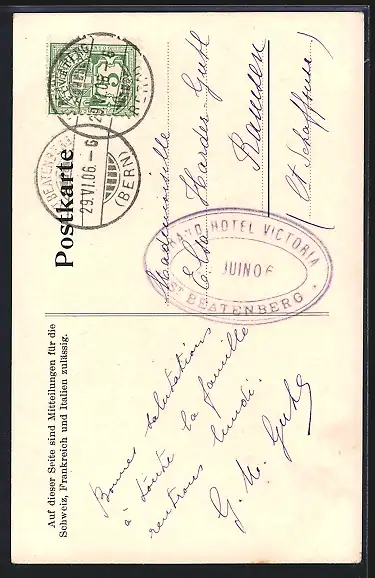 Postkarte
Auf dieser Seite sind Mitteilungen für die
Schweiz, Frankreich und Italien zulässig.
5
ST BEATENBERG
29.VI.06.–6
(BERN)
GRAND HOTEL VICTORIA
JUIN 06
ST BEATENBERG
Mademoiselle
Elsa Harder-Guhl
Ramsen
(Ct. Schaffhouse)
Bonnes salutations
à toute la famille
rentrons lundi.
G. M. Guhl